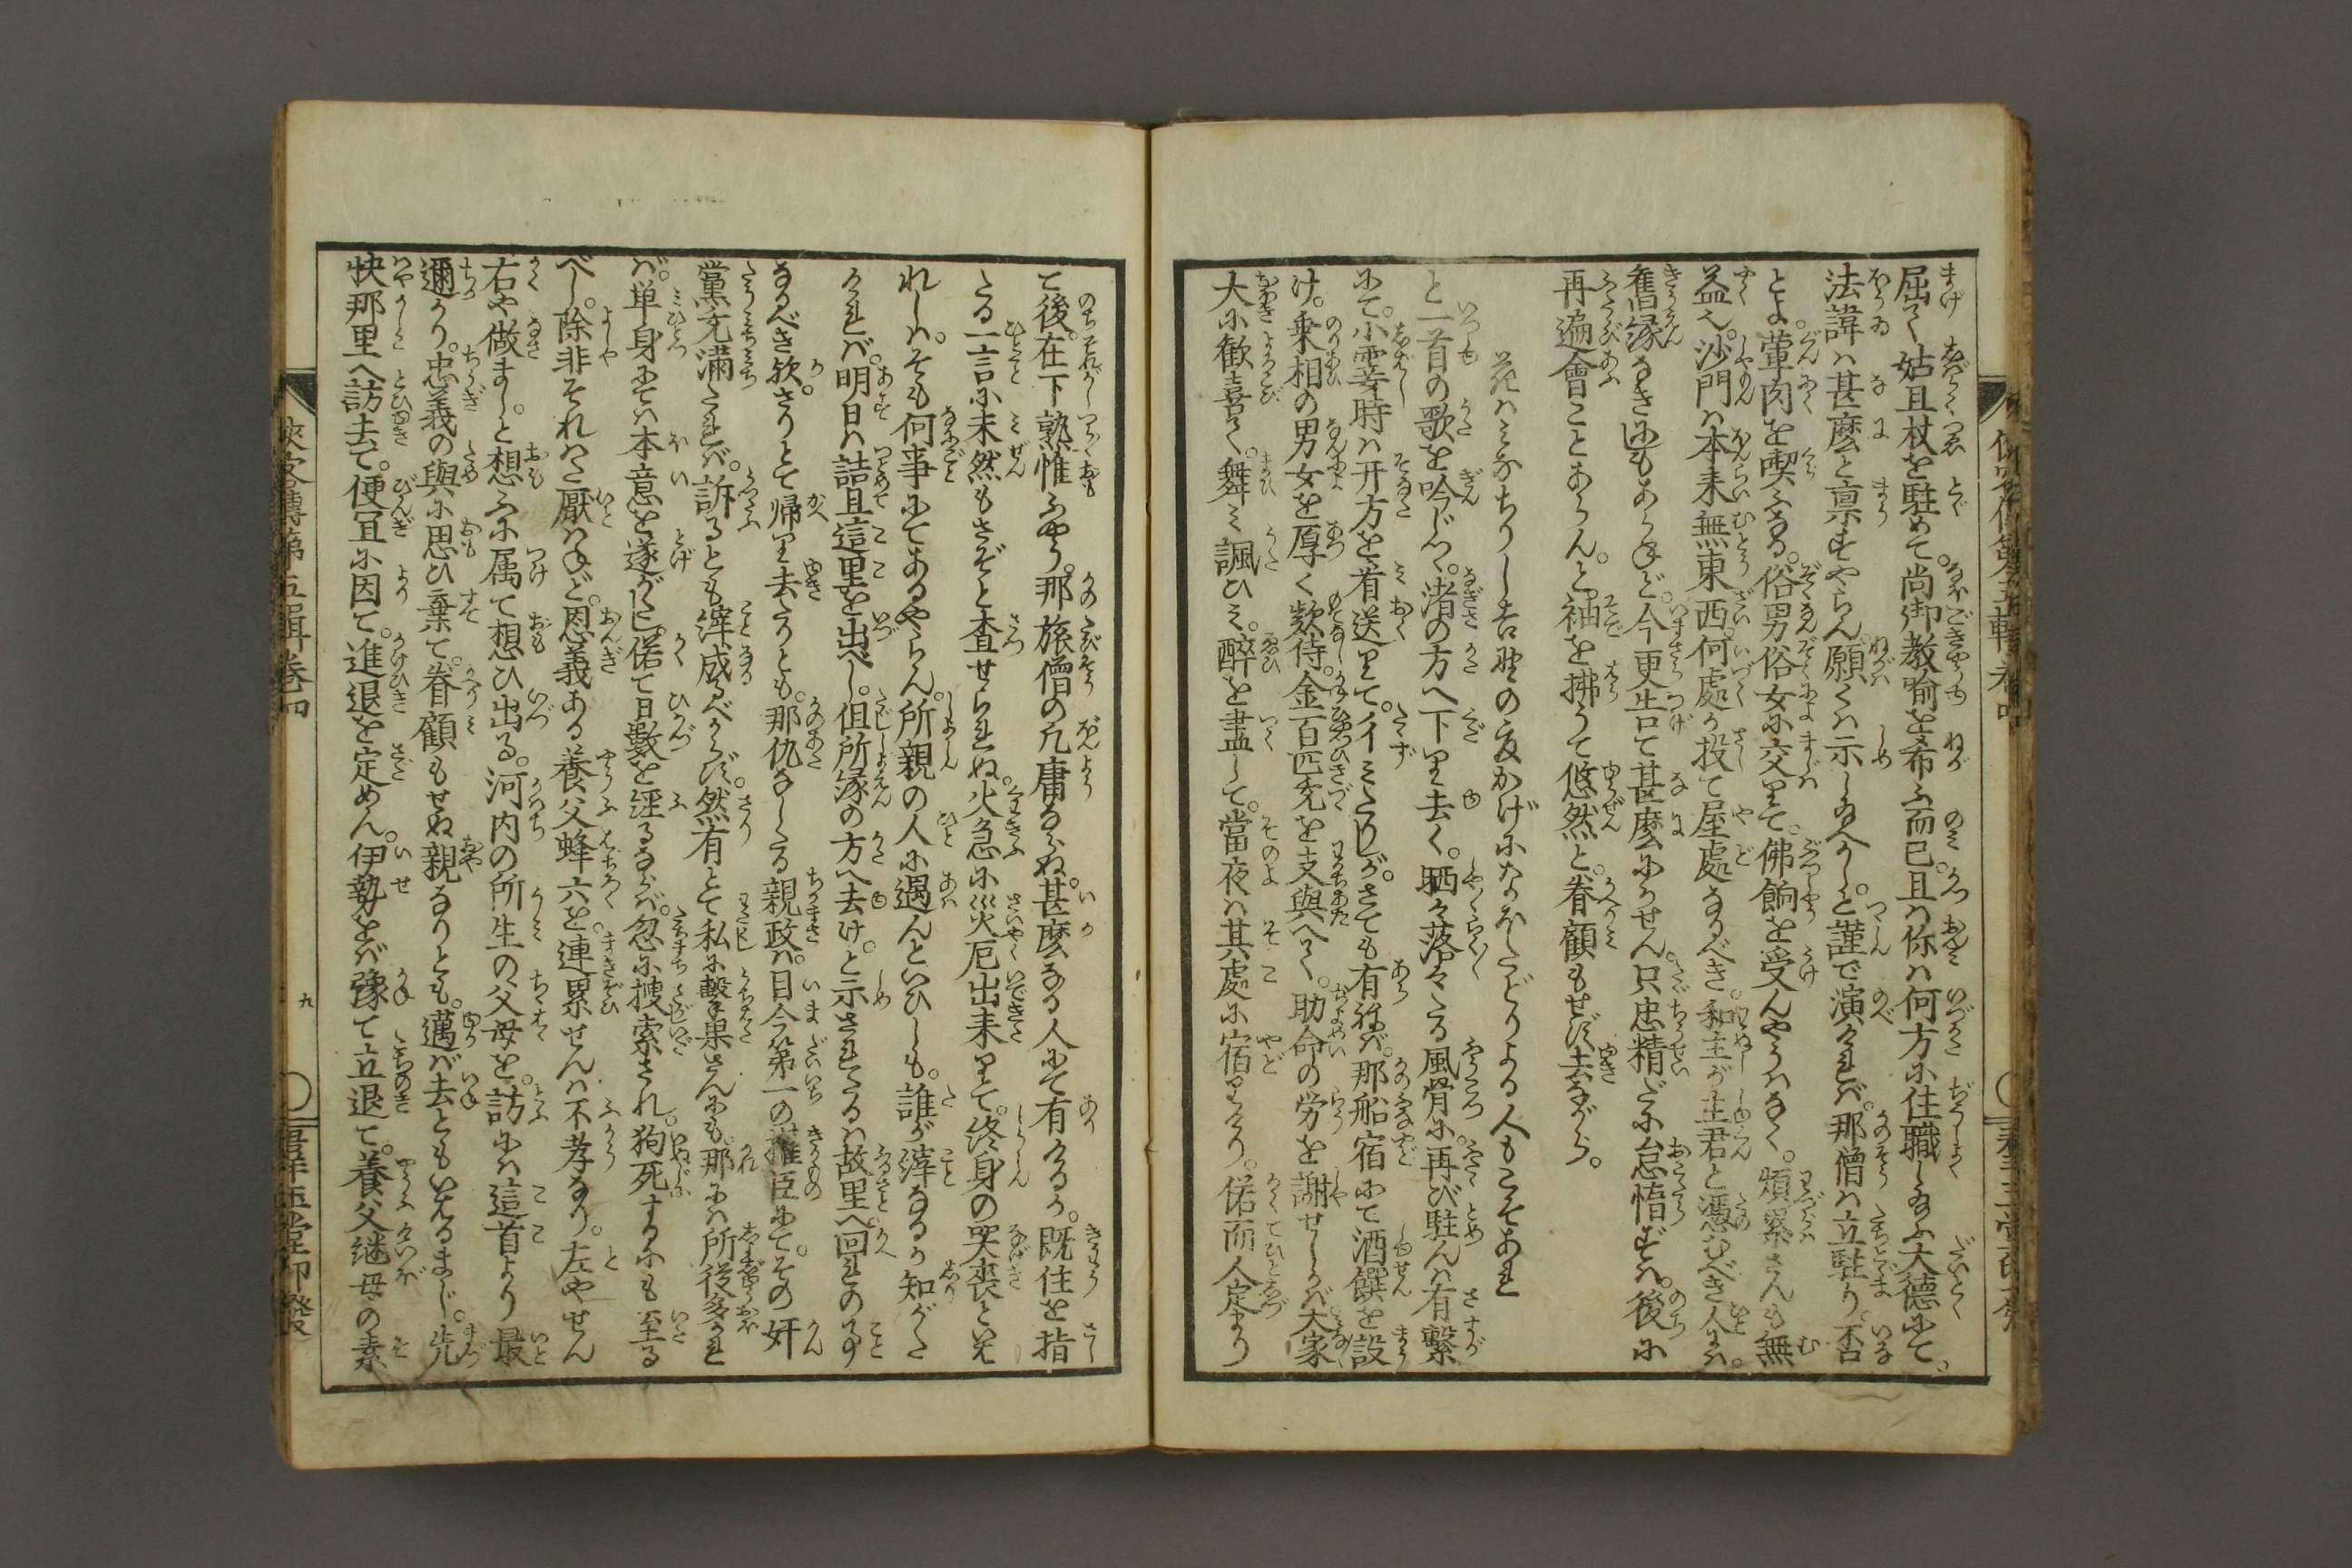 屈て姑且杖を駐めて。尚御教喩を希ふ而已。且は你は何方に住職し給ふ大徳にて。
法諱は甚麼と稟すやらん。願くは示し給へかし。と謹で演ければ。那僧は立駐り。否
とよ。葷肉を喫ふなる。俗男俗女に交りて。佛餉を受んやうはなく。煩累さんも無
益也。沙門は本来無東西。何處か投て屋處なるべき。和主が主君と憑むべき人には。
舊縁なきにもあらねど。今更告て甚麼にかせん。只忠精だに怠惰ずは。後に
再遍會ことあらん。と袖を拂うて悠然と。眷顧もせず去ながら。
花はみなちりし吉野の夏かげになほたどりよる人もこそあれ
と一首の歌を吟じつ。渚の方へ下りて去く。晒々落々たる風骨に。再び駐んは有繋
にて。小霎時は开方を看送りて。イみたりしが。さても有ねば。那船宿にて酒饌を設
け。乗相の男女を厚く款待。金百匹充を支與へて。助命の労を謝せしかば。大家
大に歓喜て。舞ミ諷ひミ。酔を盡して。當夜は其處に宿りけり。偖而人定まり
て後。在下熟惟ふやう。那旅僧の凡庸ならぬ。甚麼なる人にて有けるか。既往を指
たる一言に未然もさぞと査せられぬ。火急に災厄出来りて。終身の哭喪といえ
れしは。そも何事にてあるやらん。所親の人に遇んといひしも。誰が縡なるか知がた
ければ。明日は詰旦這里を出べし。但所縁の方へ去け。と示されたるは故里へ回れの事
なるべき欤。さりとて帰り去たりとも。那仇なしたる親政は。目今第一の權臣にて。その奸
黨充滿たれば。訴るとも縡成るべからず。然有とて私に撃果さんにも。那には所従多けれ
ば。単身にては本意を遂がたし。偖て日數を經るならば。忽に捜索され。狗死するにも至る
べし。除非それはた厭はねど。恩義ある養父蜂六を。連累せんは不孝なり。左やせん
右や做まし。と想ふに属て想ひ出る。河内の所生の父母を。訪には這首より最
邇かり。忠義の與に思ひ棄て。眷顧もせぬ親なりとも。邁ば去ともいえるまじ。先
快那里へ訪去て。便宜に因て。進退を定めん。伊勢をば豫て立退て。養父継母の素
侠客傳第五輯巻四
九
群玉堂印發